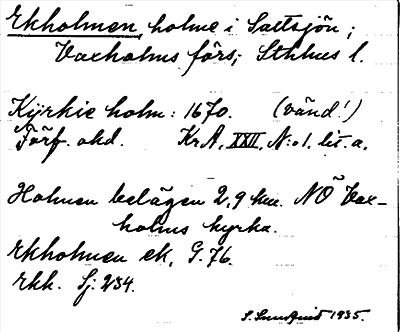 Ekholmen, holme i Saltsjön;
Vaxholms förs; Sthlms l.
Kyrkie holm: 1670. (vänd!)
Förf. okd. KrA, XXII, N:o 1. lit. a.
Holmen belägen 2,9 km. NÖ Vax-
holms kyrka.
Ekholmen ek, G. 76.
Ekk. Sj: 254.
S. Sundquist 1935.